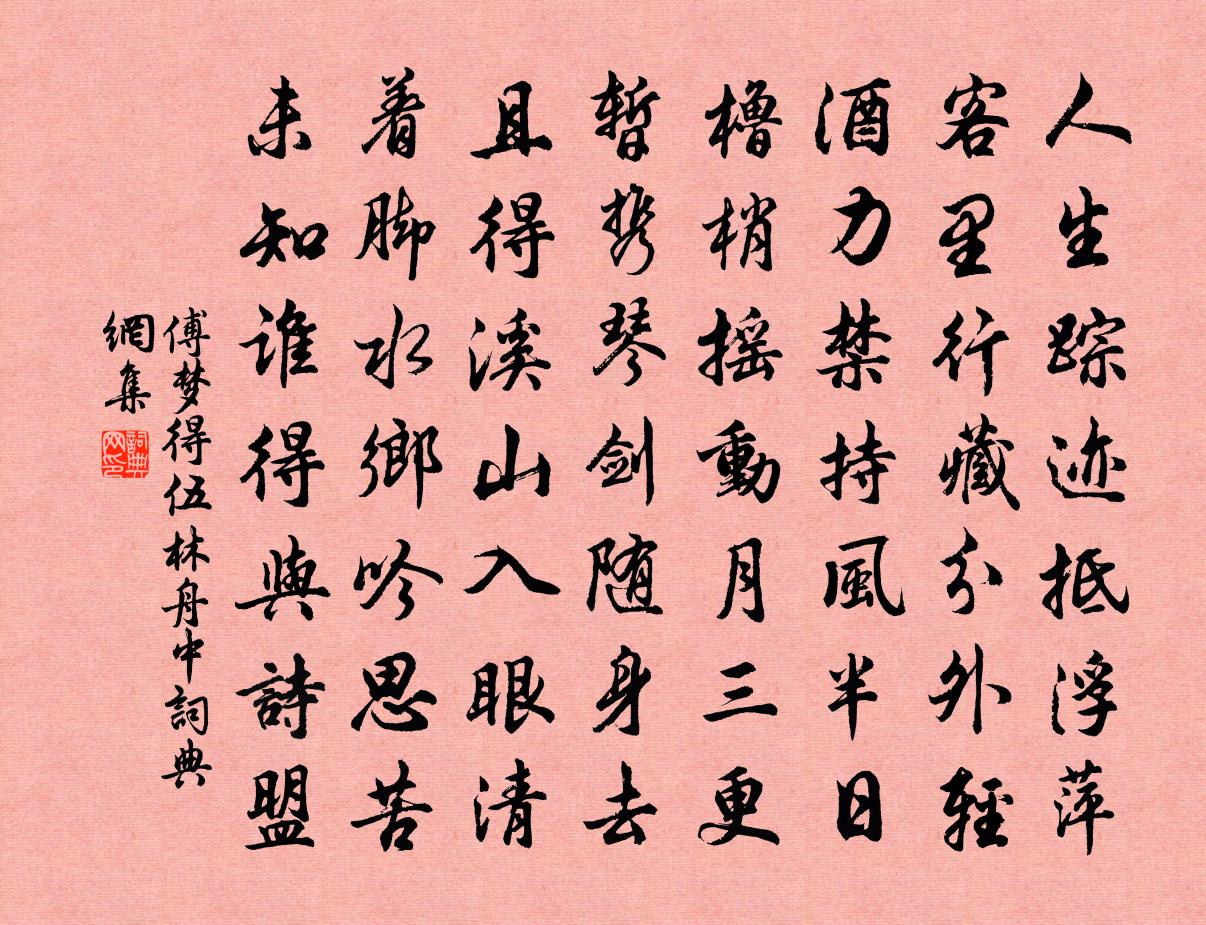 人生踪迹抵浮萍
客里行藏分外輕
酒力禁持風半日
櫓梢摇動月三更
暫携琴剑随身去
且得溪山入眼清
着脚水鄉吟思苦
未知谁得與詩盟
傅梦得伍林舟中詞典
網集
詞典网印